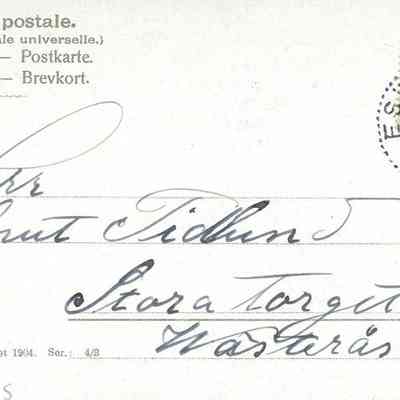 postale.
le universelle.)
— Postkarte.
— Brevkort.
ES
rr
nut Tidlund
Stora Torget
Wästerås
1904. Ser.: 4/3
s